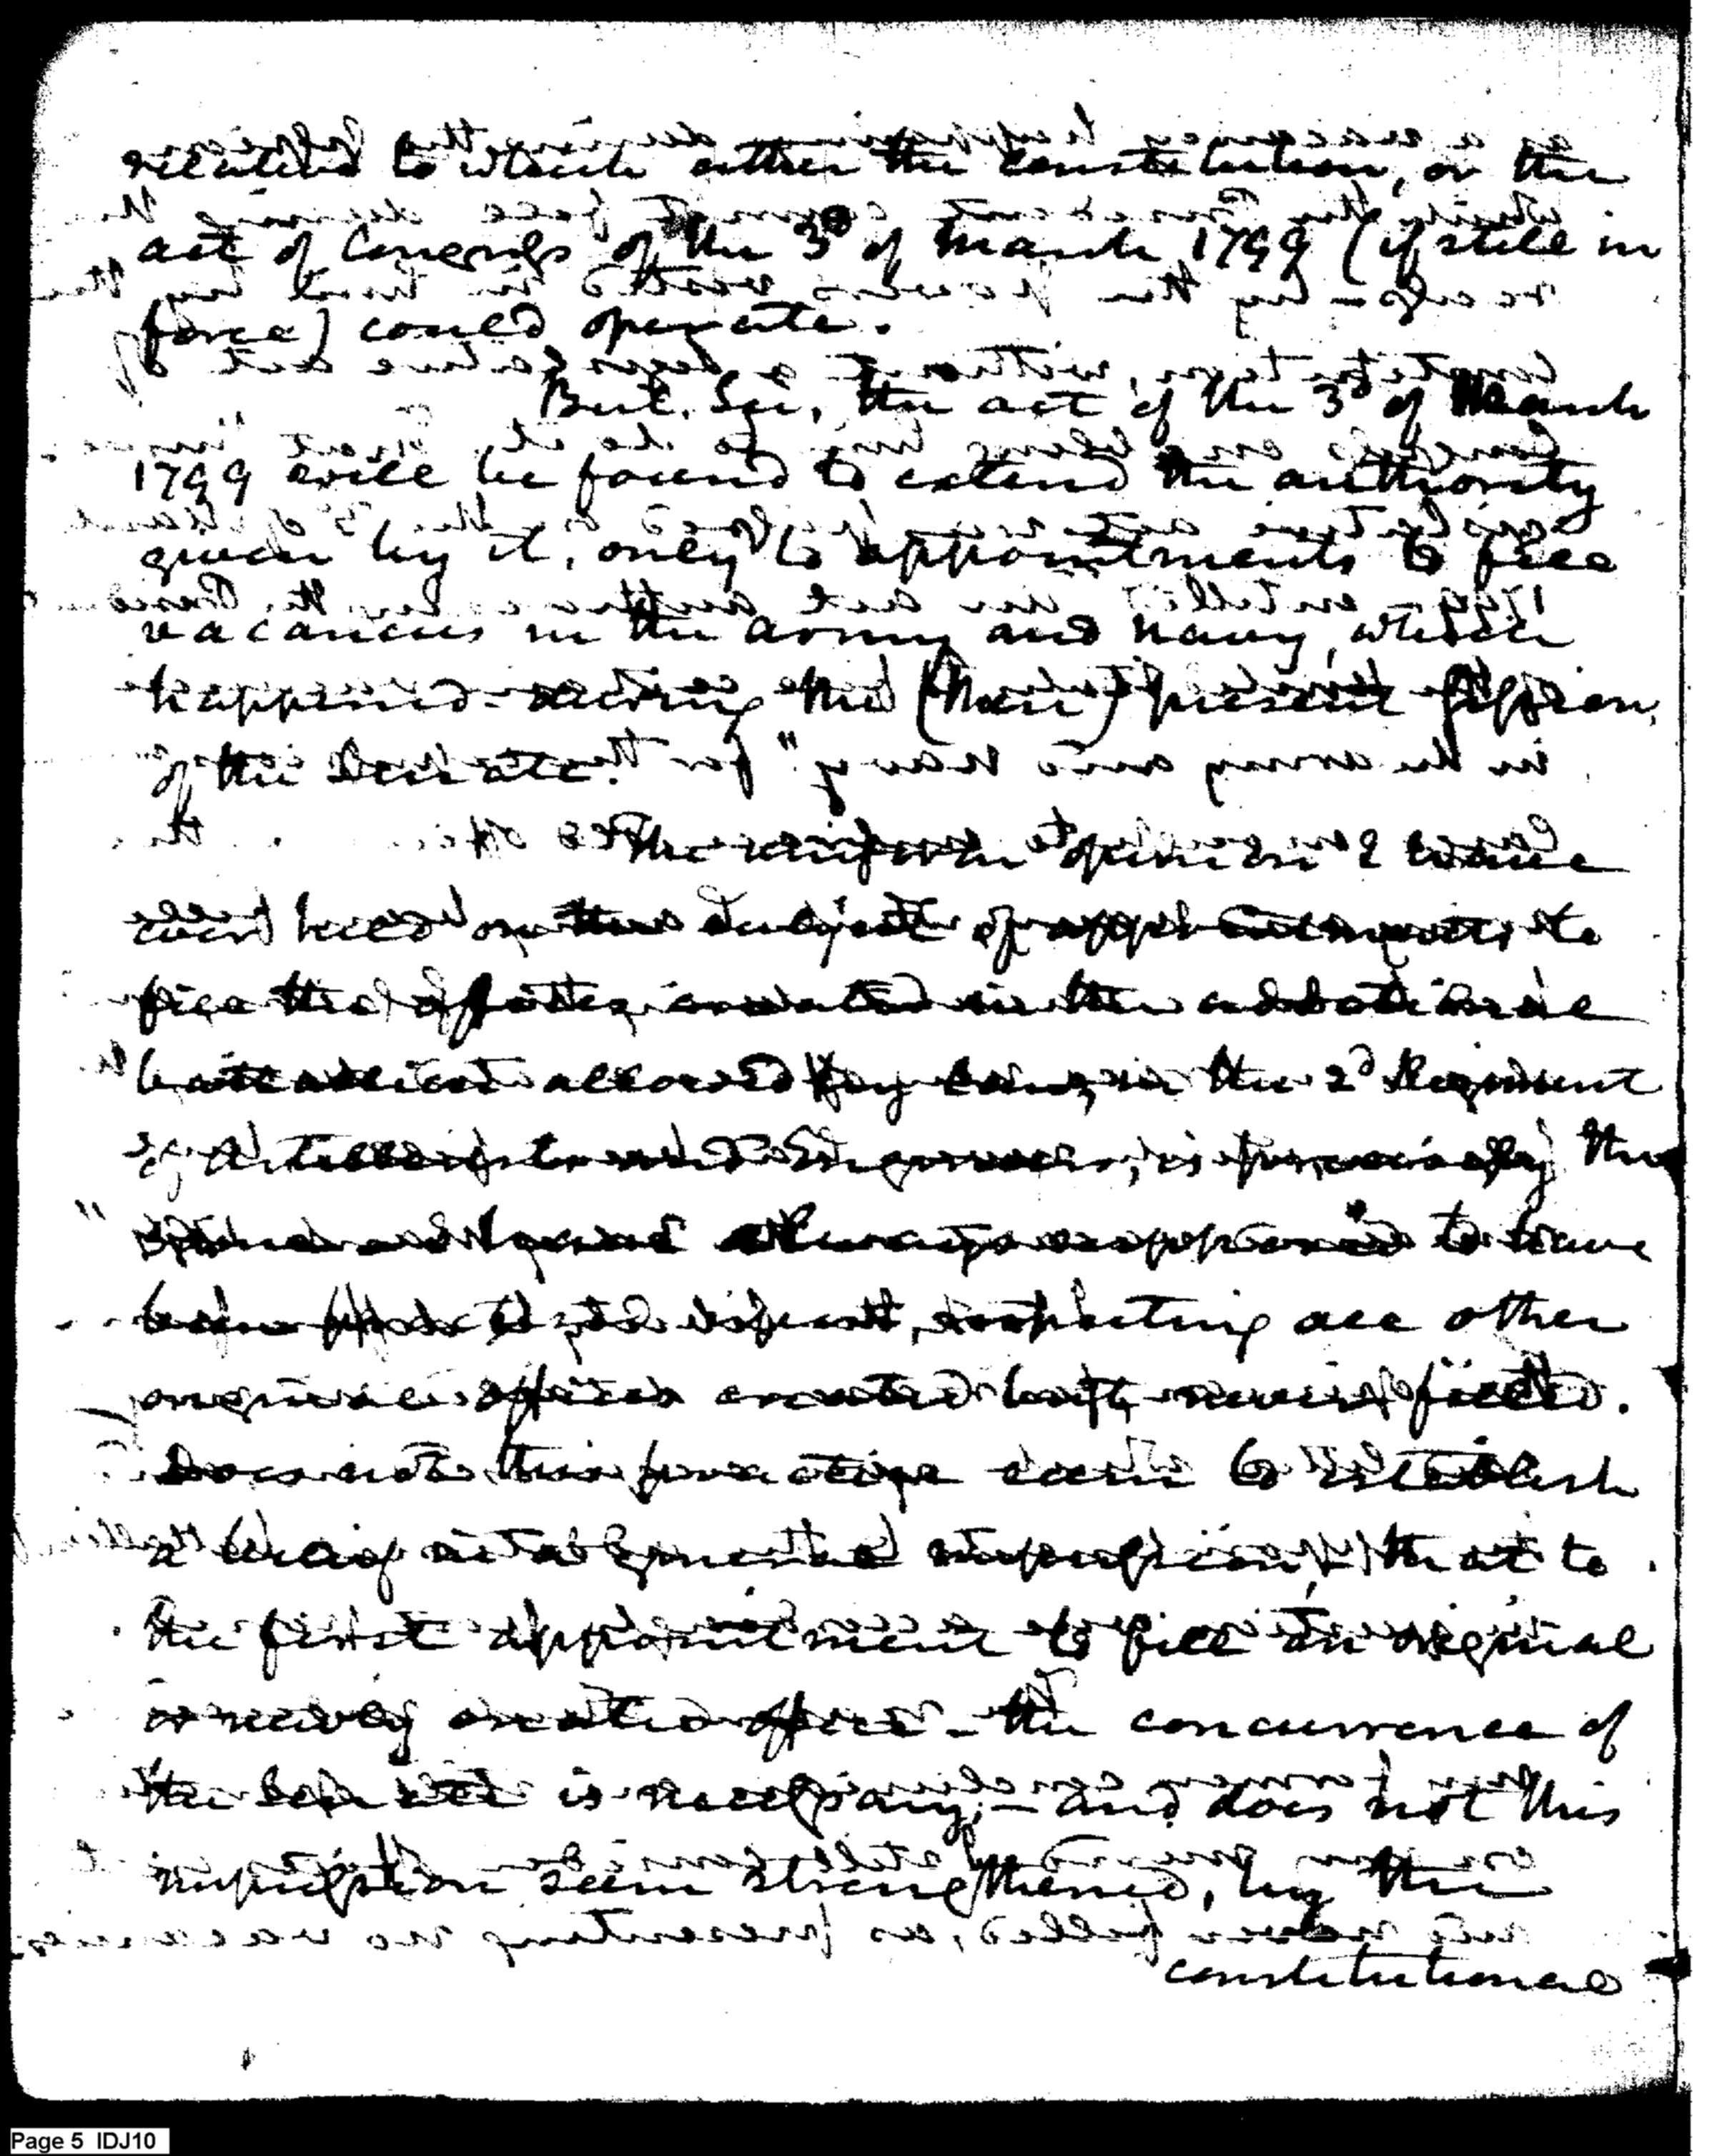 relative to which either the constitution, or the
act of Congress of the 3d of March 1799 (if still in
force) could operate.
But, Sir, the act of the 3d of March
1799 will be found to extend the authority
given by it, only to appointments to fill
vacancies in the army and navy, which
happened during the (then) present session
of the Senate.
The uniform opinion I have
ever held on the subject of appointments to
fill the offices created in the additional
battalion allowed by law, in the 2d Regiment
of Artillerists and Engineers, is precisely the
same as I have always supposed to have
been respecting all other
original offices created but never filled.
Does not this practice seem to establish
a general impression, that to
the first appointment to fill an original
or newly created office - the concurrence of
the Senate is necessary; - and does not this
impression seem strengthened, by the
constitutional
Page 5 IDJ10